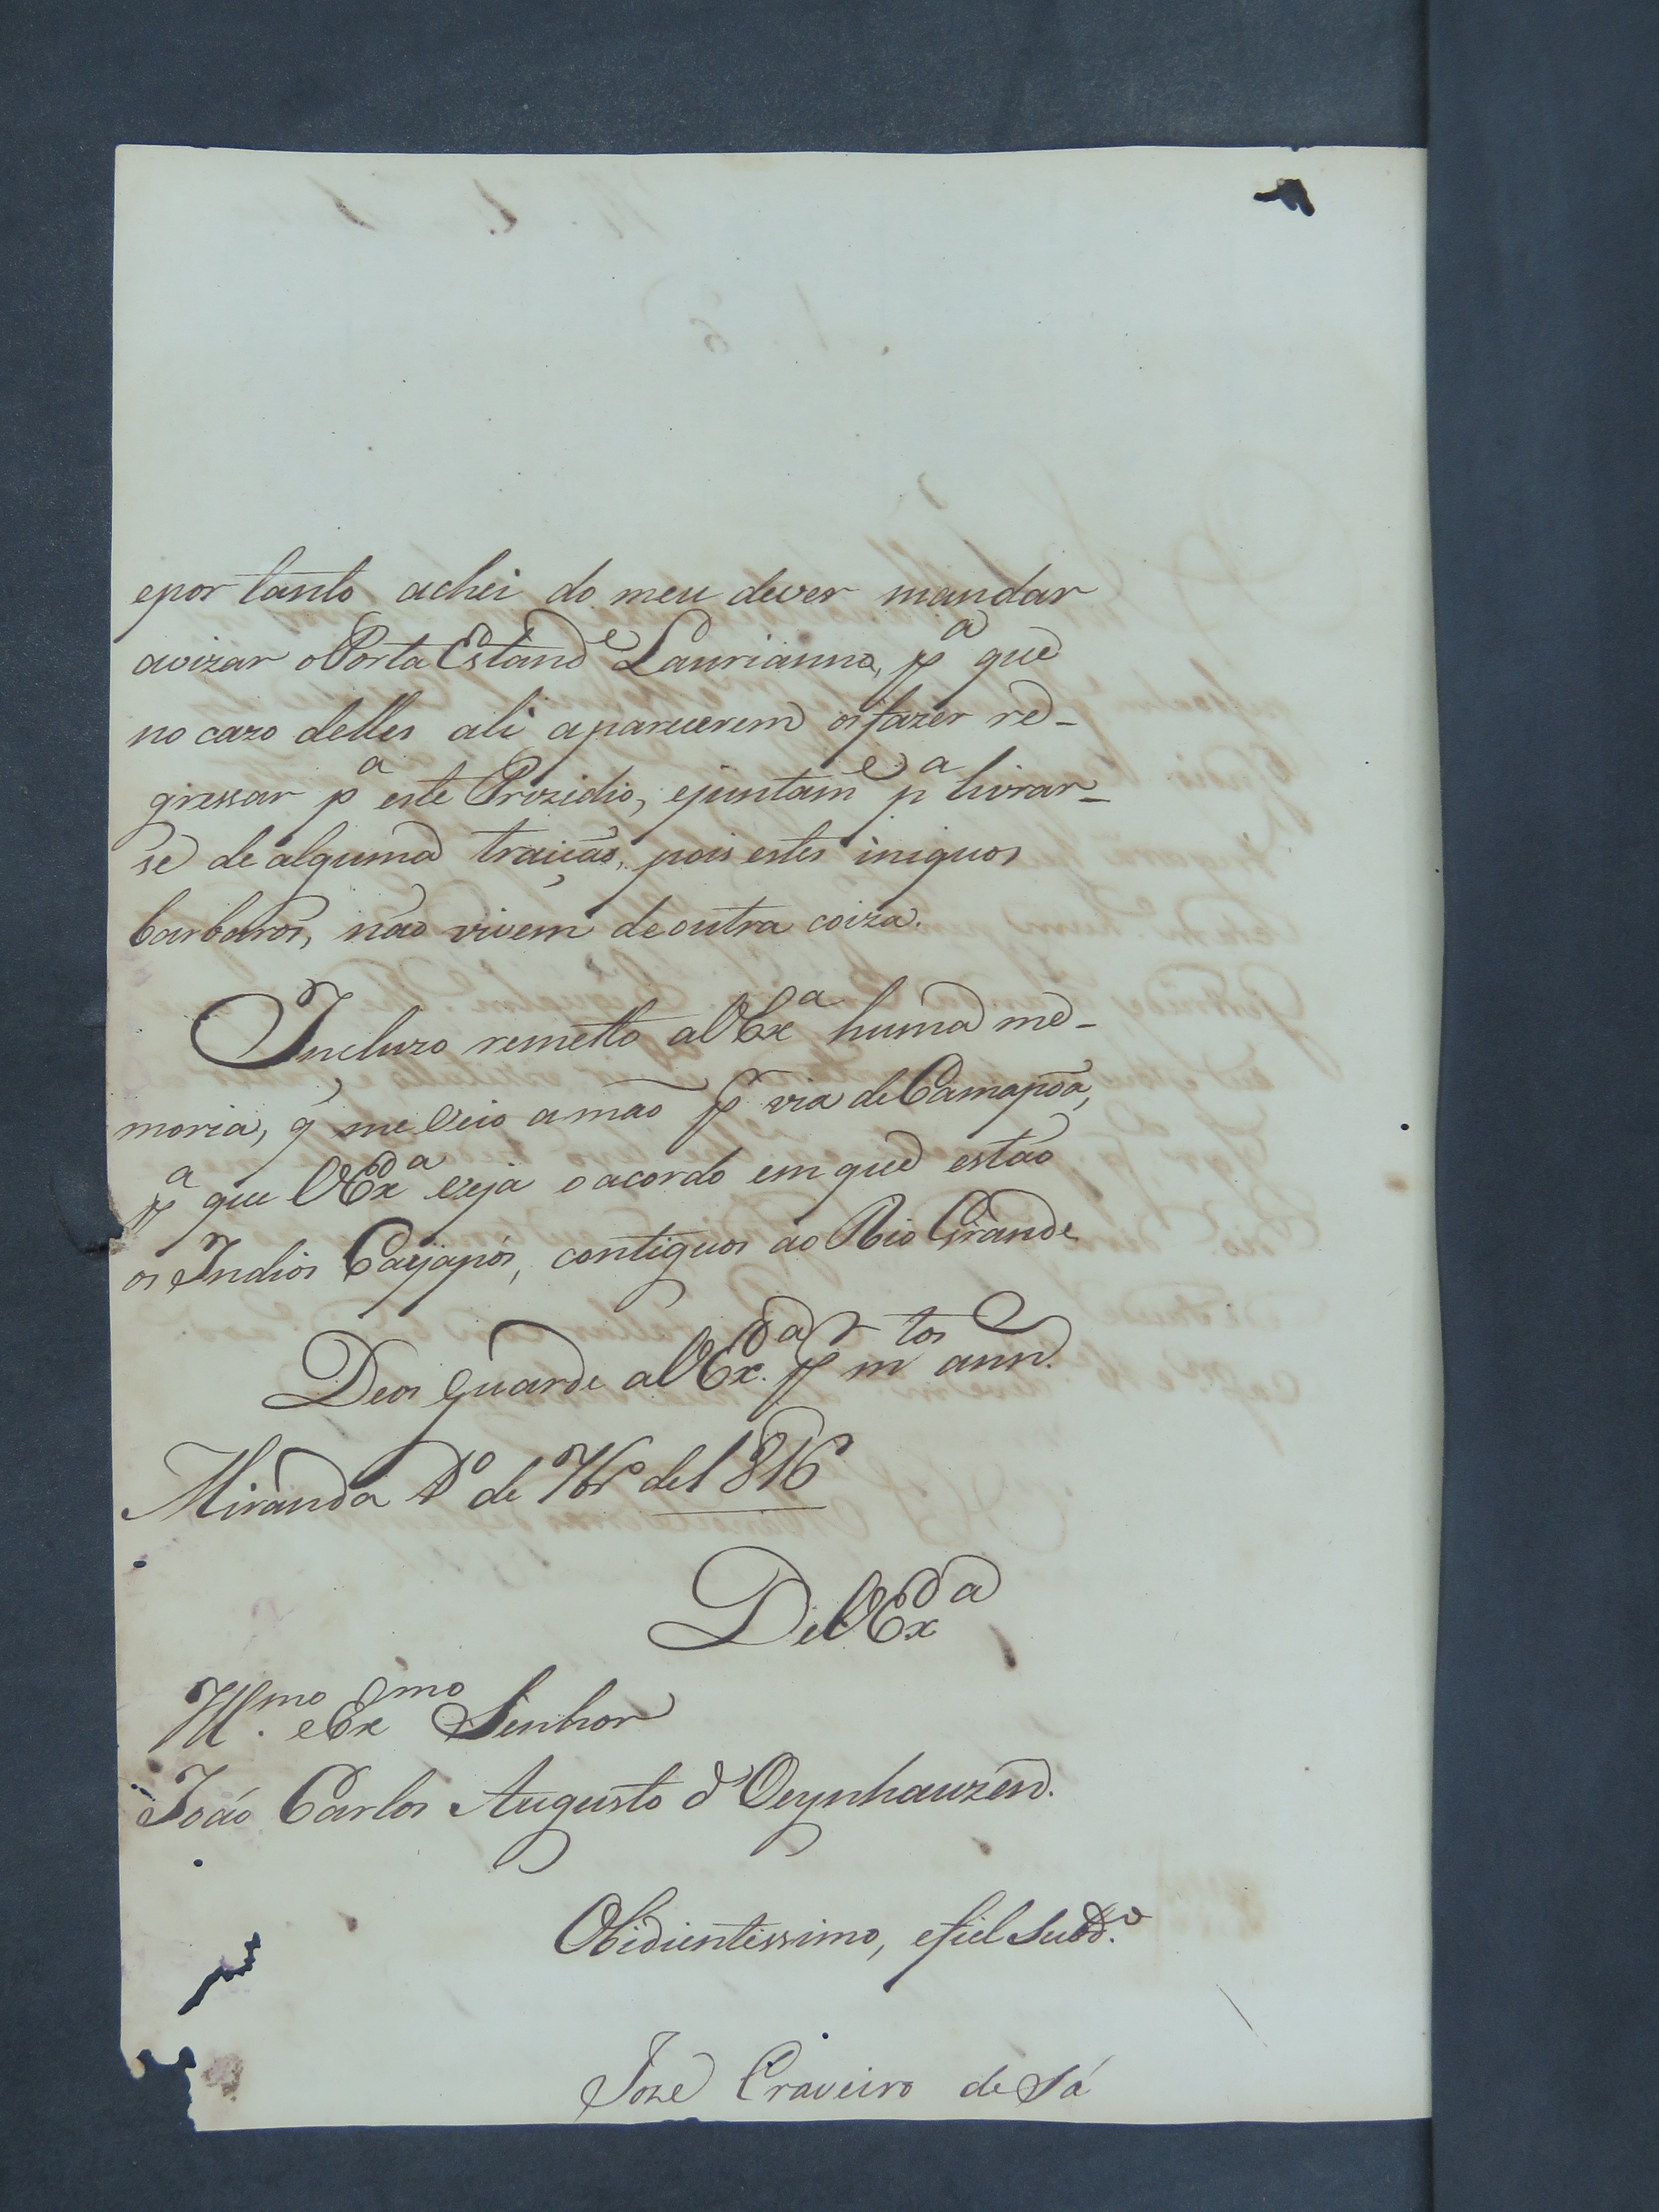 epor tanto achei do meu dever mandar
avizar oPorta Estand.e Laurianno, p.a que
no cazo delles ali aparecerem os fazer re-
gressar p.a este Prezidio, ejuntam.e p.a livrar-
se de alguma traição, pois estes iniquos
barbaros, não vivem de outra coiza.
Incluzo remetto a V Ex.a huma me-
moria, q̃ me veio amaõ p.r via de Camapoã,
p.a que V Ex.a veja o acordo em que estão
os Indios Cayapós, contiguos ao Rio Grande
Deos Guarde a V Ex.a p.r m.tos ann.
Miranda de 7br.o de 1816
De V Ex.a
Ill.mo e Ex.mo Senhor
João Carlos Augusto d'Oeynhauzen.
Obidientissimo, efiel Subd.o
Joze Craveiro de Sá